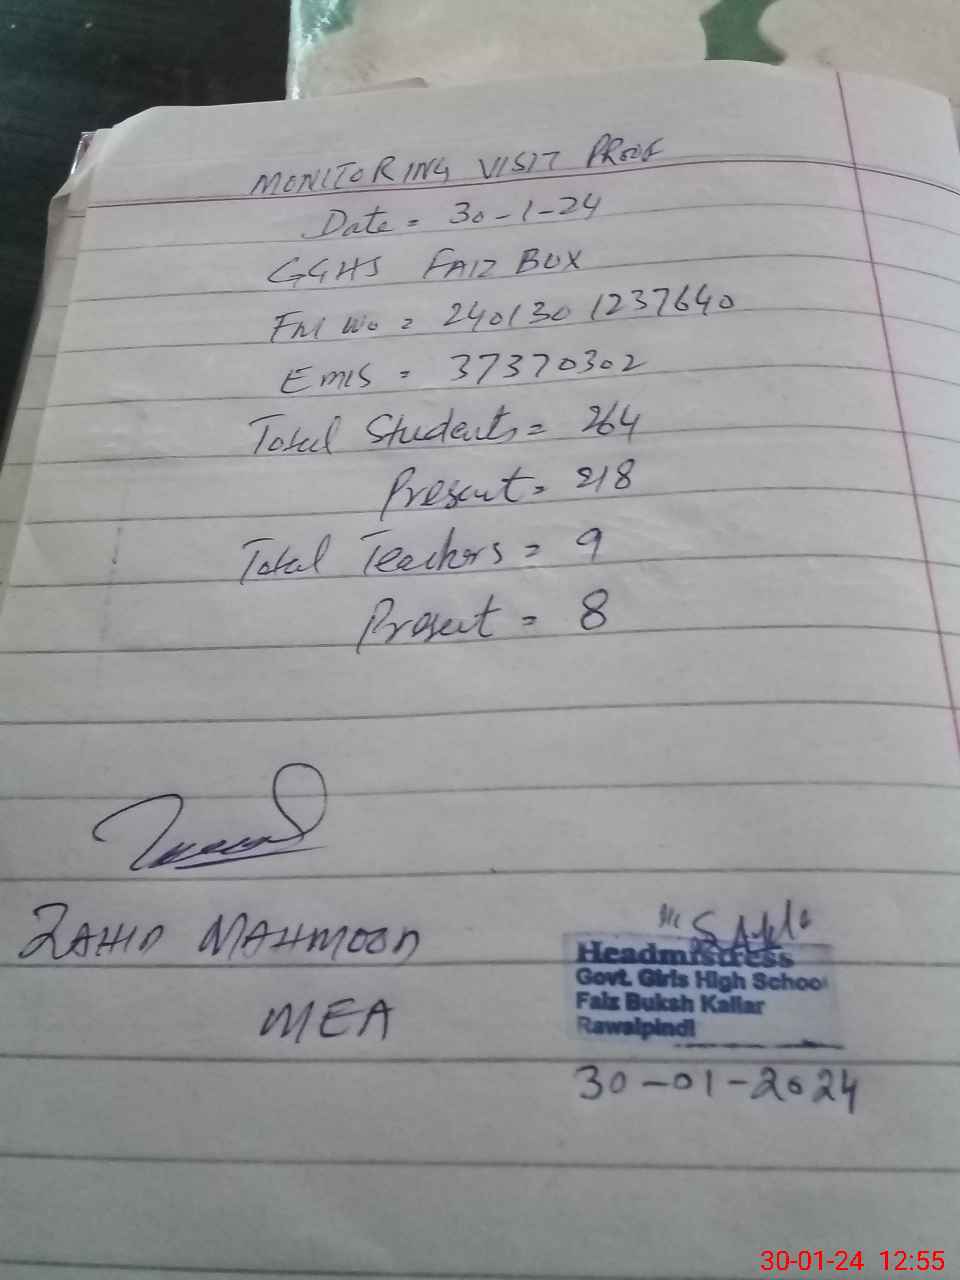 MONITORING VISIT PROOF
Date = 30-1-24
GGHS FAIZ BUX
= 2401301237640
EMIS = 37370302
Total Students = 264
Present = 218
Total Teachers = 9
Present = 8
ZAHID MAHMOOD
MEA
Headmistress
Govt. Girls High School
Faiz Buksh Kallar
Rawalpindi
30-01-2024
30-01-24 12:55